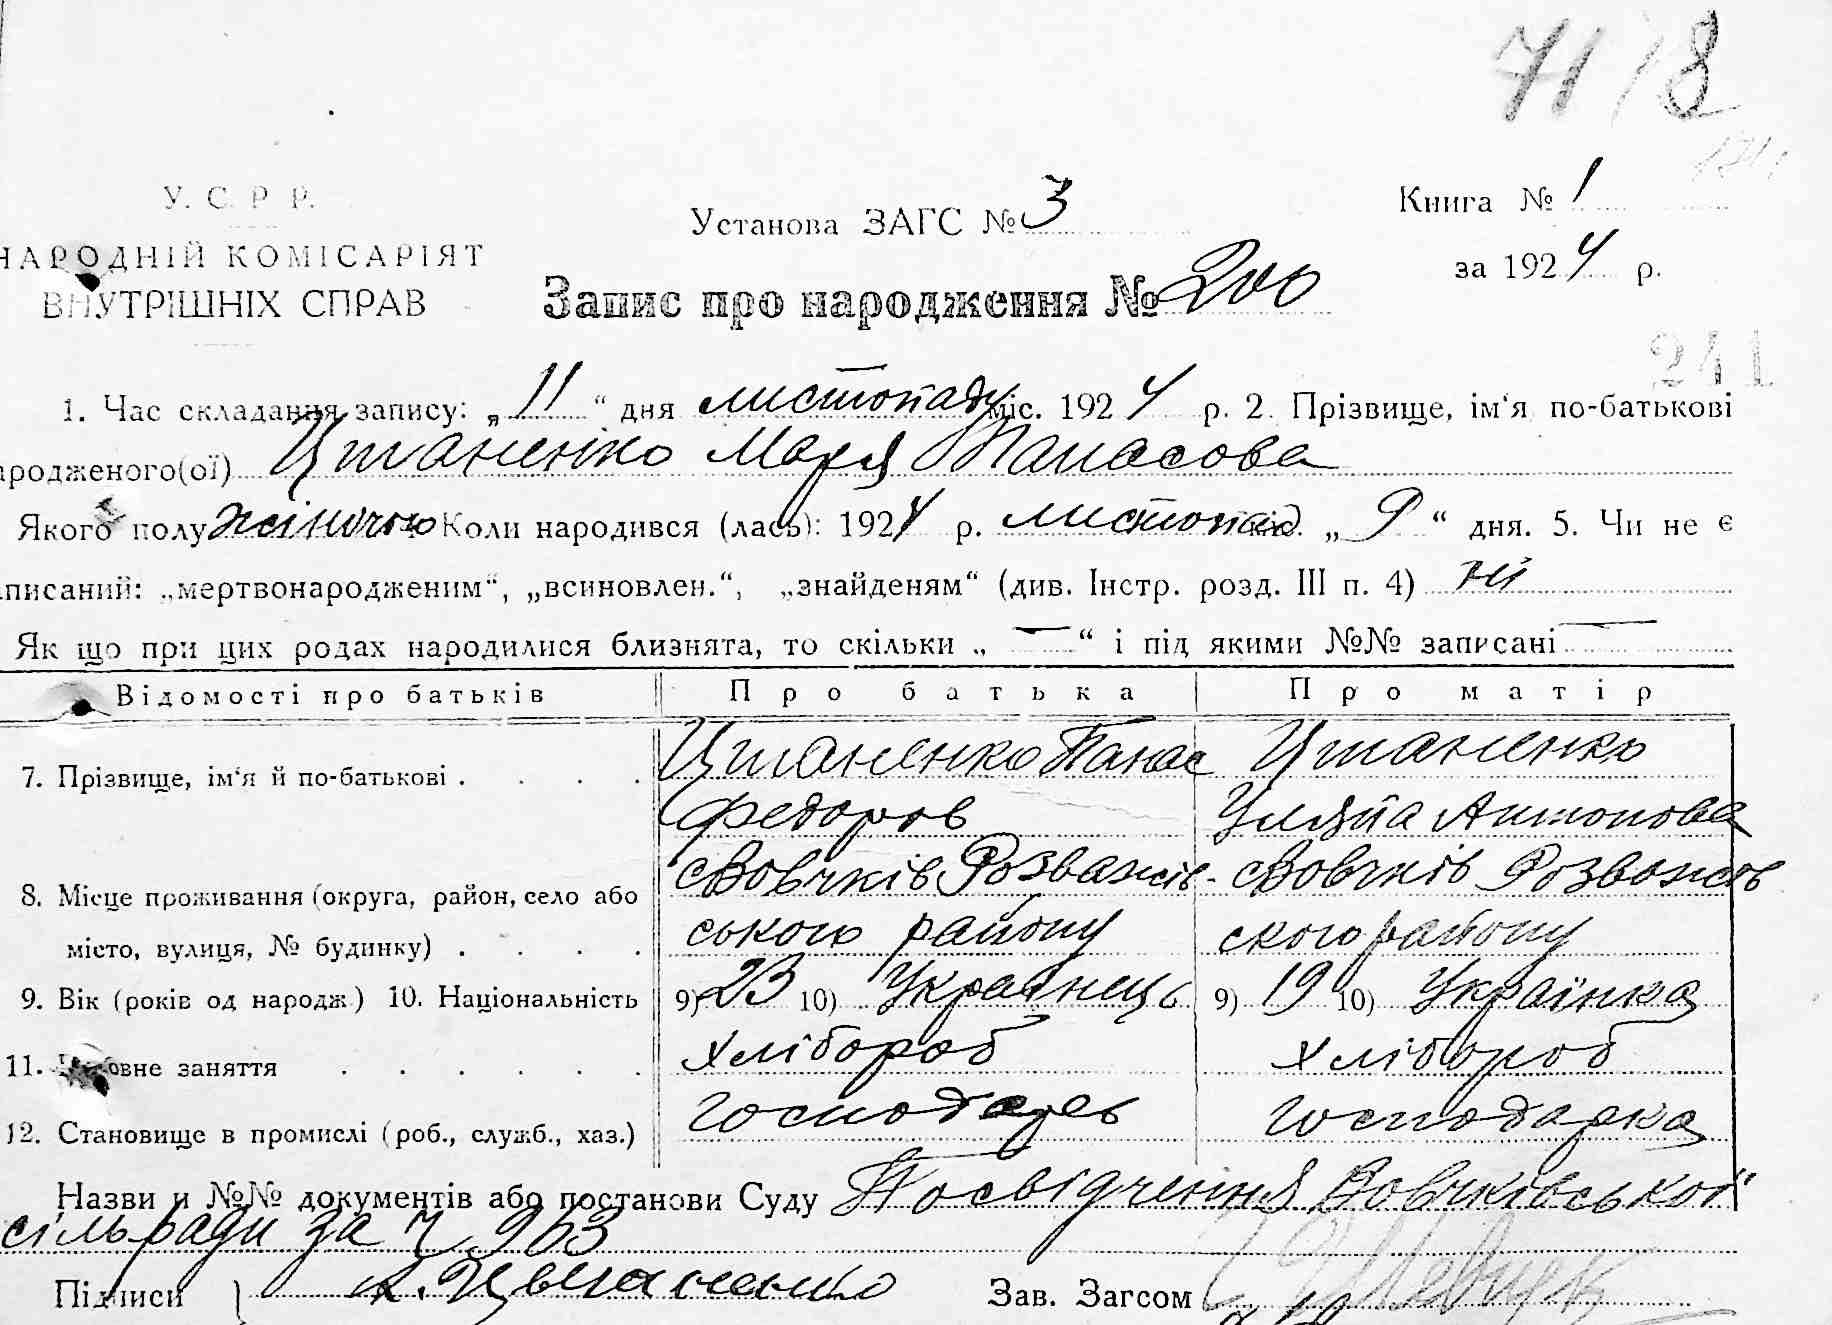 7118
У. С. Р. Р.
Установа ЗАГС № 3
Книга № 1
НАРОДНІЙ КОМІСАРІЯТ
за 1924 р.
ВНУТРІШНІХ СПРАВ
Запис про народження № 200
241
1. Час складання запису: „11“ дня листопаду міс. 1924 р. 2. Прізвище, ім‘я по-батькові
ародженого(ої) Цтаненко Марія Панасова
Якого полу жіночого Коли народився (лась): 1924 р. листопад „9“ дня. 5. Чи не є
писаний: „мертвонародженим“, „всиновлен.“, „знайденям“ (див. Інстр. розд. III п. 4) ні
Як що при цих родах народилися близнята, то скільки „ — “ і під якими №№ записані —
Відомості про батьків Про батька Про матір
7. Прізвище, ім‘я й по-батькові . . . . Цтаненко Панас Цтаненко
Федоров Уляна Антонова
8. Місце проживання (округа, район, село або с Вовчків Розважів- с Вовчків Розважів
місто, вулиця, № будинку) . . . . ського району ского району
9. Вік (років од народж.) 10. Національність 9) 23 10) Українець 9) 19 10) Українка
11. овне заняття . . . . . . хлібороб хлібороб
12. Становище в промислі (роб., служб., хаз.) господарь господарка
Назви и №№ документів або постанови Суду Посвідчення Вовчківської
сільради за ч 963
Підписи } Зав. Загсом